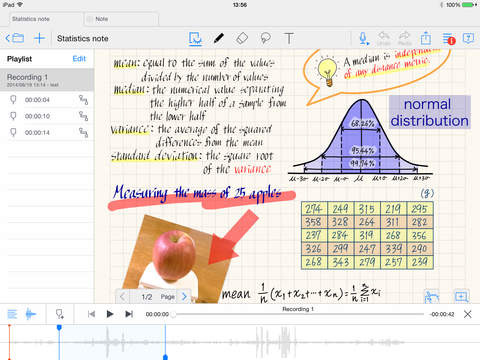 iPad
13:56
100%
Statistics note
Note
Statistics note
T
Playlist
Edit
Recording 1
00:00:04
00:00:10
00:00:14
mean: equal to the sum of the values
divided by the number of values
median: the numerical value separating
the higher half of a sample from
the lower half
variance: the average of the squared
differences from the mean
standard deviation: the square root
of the variance
A median is independent
of any distance metric.
normal
distribution
68.26%
95.44%
99.74%
μ-3σ μ-2σ μ-σ μ μ+σ μ+2σ μ+3σ
Measuring the mass of 25 apples
(g)
274 249 315 219 295
358 328 264 311 282
237 284 319 268 356
326 299 247 339 290
268 343 279 257 239
mean 1/n (x₁+x₂+···+xₙ) = 1/n Σ xᵢ
1/2 Page
00:00:00
Recording 1
-00:00:42